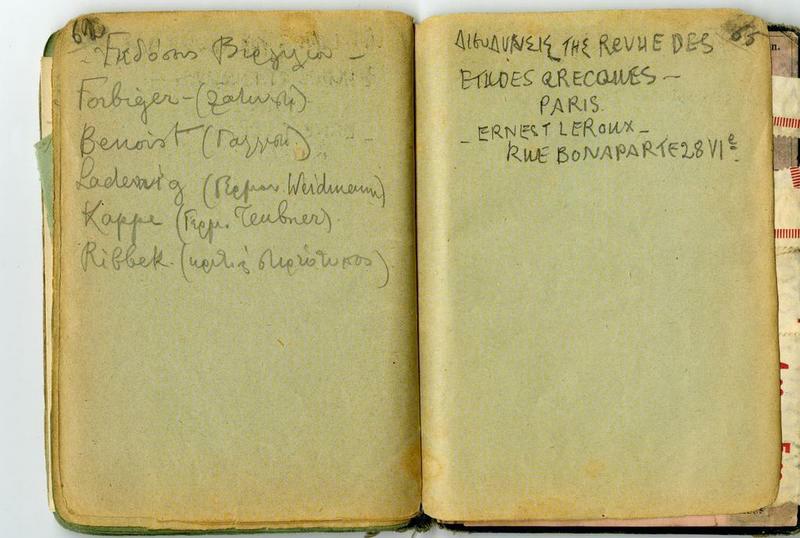 - Ἐκδόσεις Βιργιλίου -
Forbiger - (λατινική)
Benoist (Γαλλική)
Ladewig (Γερμαν. Weidmann)
Kappe (Γερμ. Teubner)
Ribbek (κριτική στερεότυπος)
65
ΔΙΕΥΘΥΝΣΙΣ ΤΗΣ REVUE DES
ETUDES GRECQUES -
PARIS.
- ERNEST LEROUX -
RUE BONAPARTE 28 VIe.